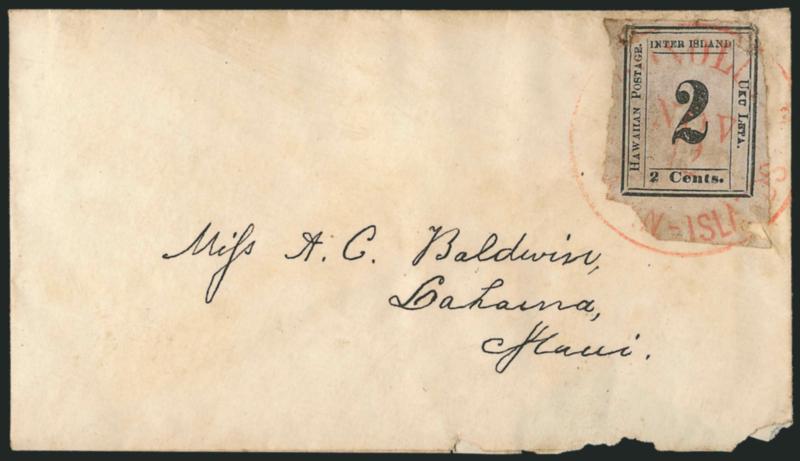 INTER ISLAND
HAWAIIAN POSTAGE.
UKU LETA.
2
2 Cents.
Miss A. C. Baldwin,
Lahaina,
Maui.